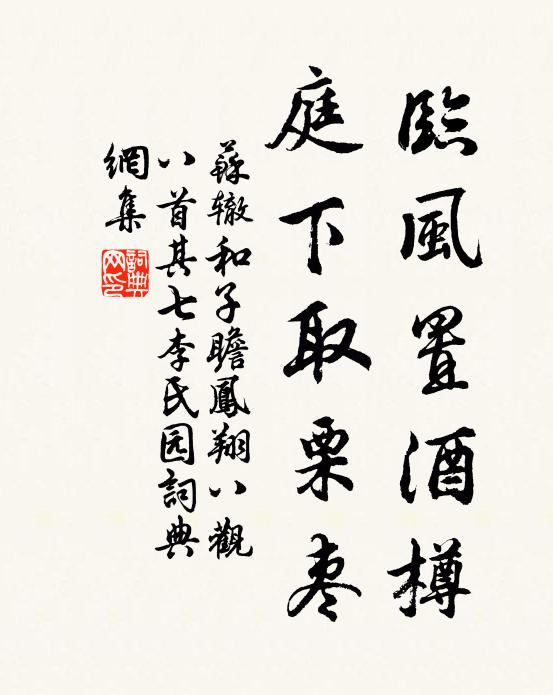 臨風置酒樽
庭下取栗枣
蘇辙和子瞻鳳翔八觀
八首其七李氏园詞典
網集
詞典网印